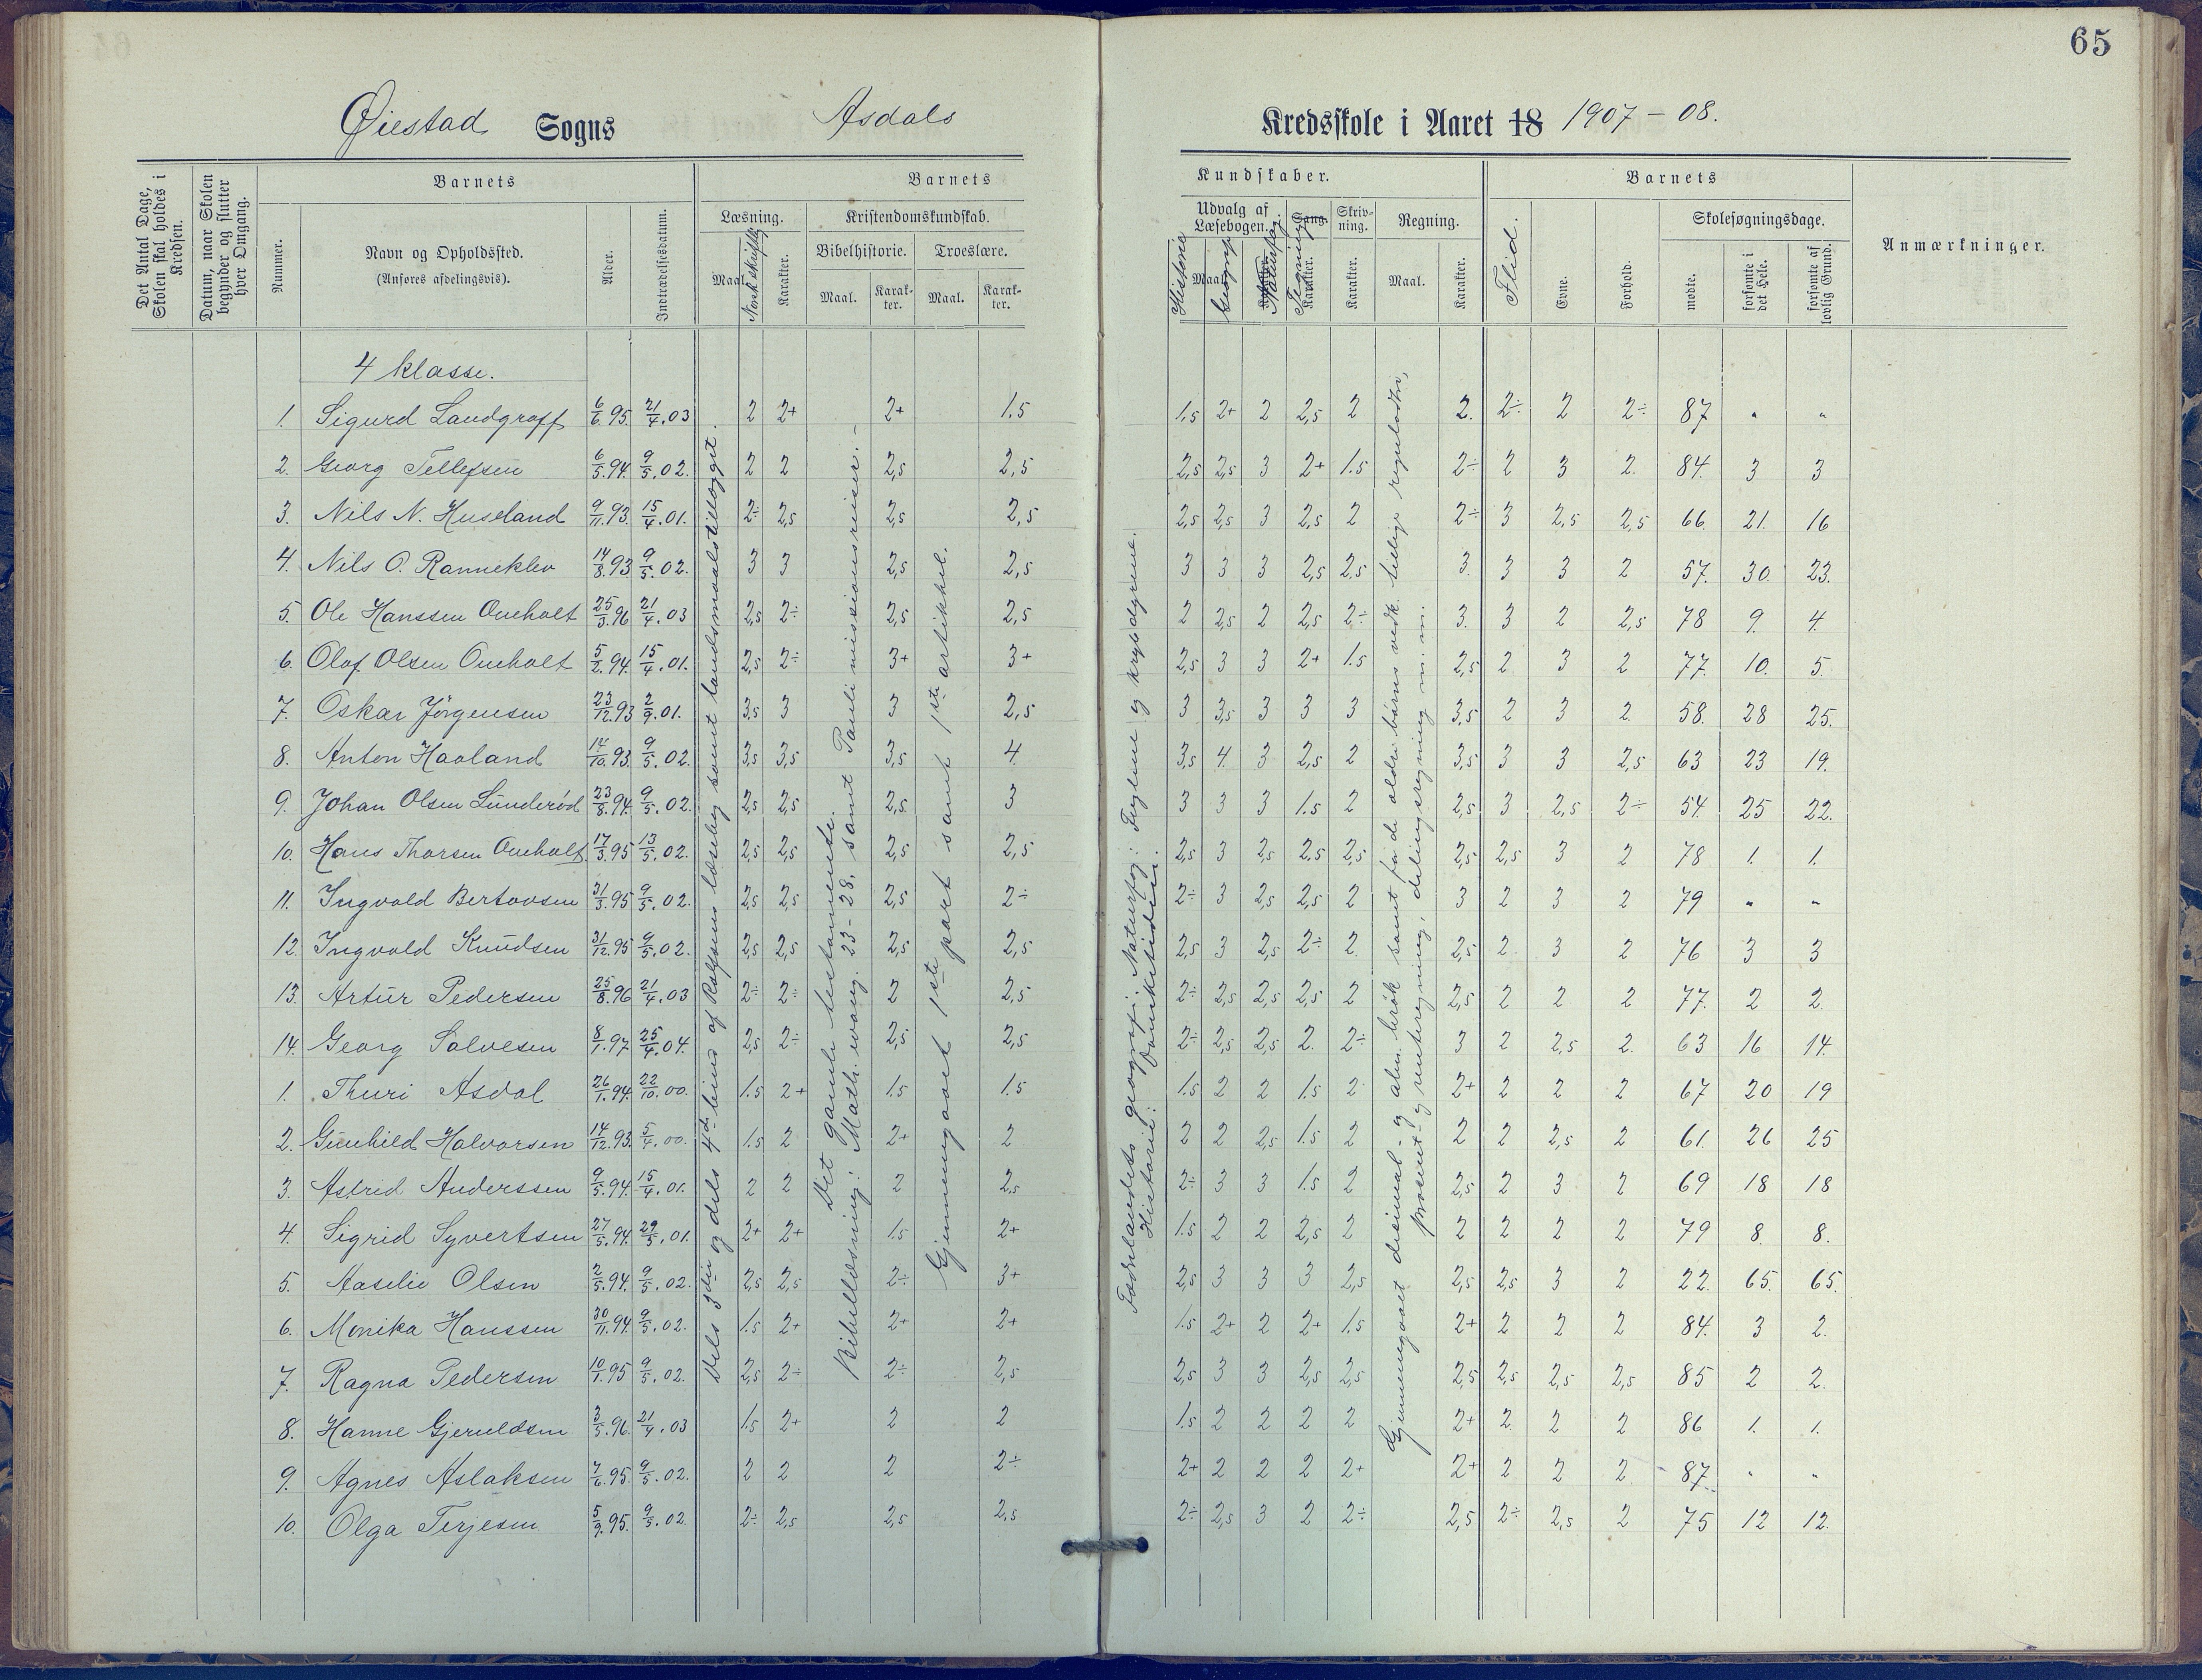 65
Øiestad Sogns Asdals Kredsskole i Aaret 18 1907-08.
Det Antal Dage, Skolen skal holdes i Kredsen.
Datum, naar Skolen begynder og slutter hver Omgang.
Barnets
Nummer.
Navn og Opholdssted.
(Anføres afdelingsvis).
Alder.
Indtrædelsesdatum.
Barnets Kundskaber.
Læsning.
Maal.
Norsk skriftlig
Karakter.
Kristendomskundskab.
Bibelhistorie.
Maal.
Karakter.
Troeslære.
Maal.
Karakter.
Udvalg af Læsebogen.
Historie
Maal.
Geografi
Karakter.
Naturfag.
Sang.
Tegning
Karakter.
Skrivning.
Karakter.
Regning.
Maal.
Karakter.
Barnets
Flid.
Evne.
Forhold.
Skolesøgningsdage.
mødte.
forsømte i det Hele.
forsømte af lovlig Grund.
Anmærkninger.
4 klasse.
1. Sigurd Landgraff 6/6.95. 21/4.03 2 2+ 2+ 1.5 1.5 2+ 2 2,5 2 2. 2÷ 2 2÷ 87 " "
2. Georg Tellefsen 6/5.94. 9/5.02. 2 2 2,5 2,5 2,5 2,5 3 2+ 1.5 2÷ 2 3 2. 84. 3 3
3. Nils N. Huseland 9/11.93. 15/4.01. 2÷ 2,5 2,5 2,5 2,5 2,5 3 2,5 2 2÷ 3 2,5 2,5 66. 21. 16
4. Nils O. Ranneklev 14/8.93 9/5.02. 3 3 2,5 2,5 3 3 3 2,5 2,5 3. 3 3 2 57. 30. 23.
5. Ole Hanssen Oueholt 25/3.96 21/4.03 2,5 2÷ 2,5 2,5 2 2,5 2 2,5 2÷ 3. 3 2 2,5 78 9. 4.
6. Olaf Olsen Oueholt 5/2.94. 15/4.01. 2,5 2÷ 3+ 3+ 2,5 3 3 2+ 1.5 2,5 2 3 2 77. 10. 5.
7. Oskar Jörgensen 23/12.93 2/9.01. 3,5 3 3 2,5 3 3,5 3 3 3 3,5 2 3 2 58. 28 25.
8. Anton Haaland 14/10.93. 9/5.02. 3,5 3,5 3,5 4 3,5 4. 3 2,5 2 3,5 3 3 2,5 63 23 19.
9. Johan Olsen Lunderöd 23/8.94. 9/5.02. 2,5 2,5 2,5 3 3 3 3 1.5 2 2,5 3 2,5 2÷ 54. 25 22.
10. Hans Thorsen Oueholt 17/3.95 13/5.02. 2,5 2,5 2,5 2,5 2,5 3 2,5 2,5 2,5 2,5 2,5 3 2 78 1. 1.
11. Ingvald Bertovsen 31/3.95 9/5.02. 2,5 2,5 2,5 2÷ 2÷ 3 2,5 2,5 2 3 2 3 2 79 " "
12. Ingvald Knudsen 31/12.95 9/5.02. 2,5 2,5 2,5 2,5 2,5 3 2,5 2÷ 2. 2,5 2 3 2 76 3 3
13. Artur Pedersen 25/8.96 21/4.03 2÷ 2÷ 2 2,5 2÷ 2,5 2,5 2,5 2 2,5 2 2 2 77. 2 2.
14. Georg Salvesen 8/1.97 25/4.04. 2,5 2÷ 2,5 2,5 2÷ 2,5 2,5 2. 2÷ 3 2 2,5 2. 63 16 14.
1. Thuri Asdal 26/1.94. 22/10.00. 1.5 2+ 1.5 1.5 1.5 2 2 1.5 2 2+ 2 2 2 67 20 19
2. Gunhild Halvorsen 14/12.93. 5/4.00. 1.5 2 2+ 2 2 2 2,5 1.5 2 2 2 2,5 2 61. 26 25
3. Astrid Anderssen 9/5.94. 15/4.01. 2 2 2 2,5 2÷ 3 3 1.5 2 2,5 2 3 2 69 18 18
4. Sigrid Syvertsen 27/5.94. 29/5.01. 2+ 2+ 1.5 2+ 1.5 2 2 2,5 2 2 2 2 2 79 8. 8.
5. Aaselie Olsen 2/5.94. 9/5.02. 2,5 2,5 2÷ 3+ 2,5 3 3 3 2,5 2,5 2,5 3 2 22. 65. 65.
6. Monika Hanssen 30/11.94. 9/5.02. 1.5 2+ 2+ 2+ 1.5 2+ 2 2+ 1.5 2+ 2 2 2 84. 3 2.
7. Ragna Pedersen 10/1.95 9/5.02. 2,5 2÷ 2÷ 2,5 2,5 3 3 2,5 2,5 2,5 2,5 2,5 2,5 85 2 2.
8. Hanne Gjeruldsen 3/5.96. 21/4.03 1.5 2+ 2 2 1.5 2 2 2 2 2+ 2. 2 2 86 1. 1.
9. Agnes Aslaksen 7/6.95. 9/5.02. 2 2 2 2÷ 2+ 2 2 2 2+ 2+ 2 2 2 87. " "
10. Olga Terjesen 5/9.95. 9/5.02 2÷ 2,5 2,5 2,5 2÷ 2,5 3 2 2÷ 2,5 2÷ 2,5 2 75 12 12.
Dels 3die og dels 4de bind af Rolfsens læsebog samt landsmaalstillægget.
Det gamle testamente.
Bibellæsning: Math. evang. 23-28, samt Pauli missionsreiser.
Gjennemgaaet 1ste part samt 1ste artikkel.
Fædrelandets geografi. Naturfag: Fuglene og krybdyrene.
Historie:
Gjennemgaaet desimal- og alm. brök samt for de ældre börns vedk. tillige reguladetri,
prosent- og rentesregning, delingsregning m.m.